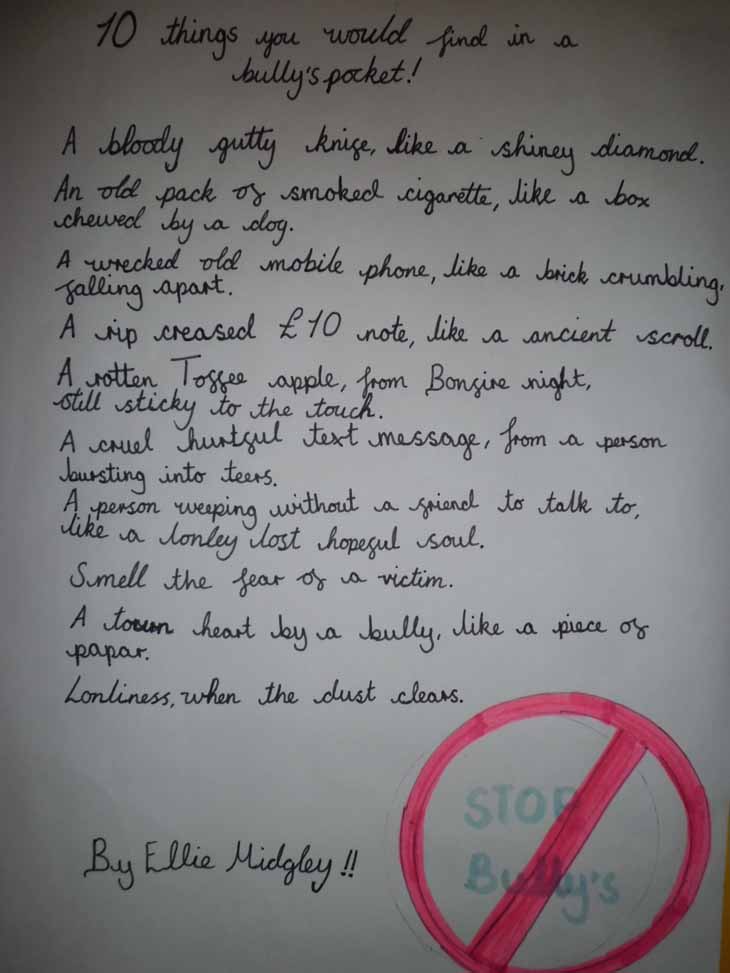 10 things you would find in a
bully's pocket!
A bloody gutty knife, like a shiney diamond.
An old pack of smoked cigarette, like a box
chewed by a dog.
A wrecked old mobile phone, like a brick crumbling,
falling apart.
A rip creased £10 note, like a ancient scroll.
A rotten Toffee apple, from Bonfire night,
still sticky to the touch.
A cruel hurtful text message, from a person
bursting into teers.
A person weeping without a friend to talk to,
like a lonley lost hopeful soul.
Smell the fear of a victim.
A tourn heart by a bully, like a piece of
papar.
Lonliness, when the dust clears.
STOP
Bully's
By Ellie Midgley !!